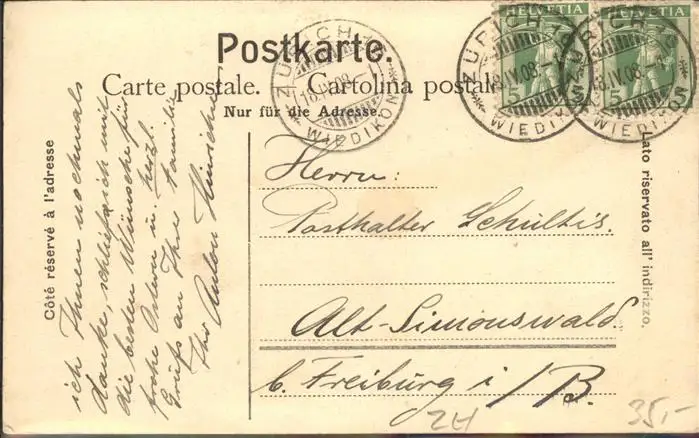 Postkarte.
Carte postale. Cartolina postale
Nur für die Adresse.
Côté réservé à l'adresse
Lato riservato all' indirizzo.
HELVETIA
5
HELVETIA
5
ZÜRICH 19
18.IV.08.
WIEDIKON
ZÜRICH 19
18.IV.08.-
WIEDIKON
ZÜRICH 19
18.IV.08.-
WIEDIKON
Herrn:
Posthalter Schultis.
Alt-Simonswald.
b. Freiburg i/B.
ich Ihnen nochmals
danke, schließe ich mit
die besten Wünsche für
frohe Ostern u. herzl.
Grüße an Ihre Familie
Ihr Anton
ZH
35,-